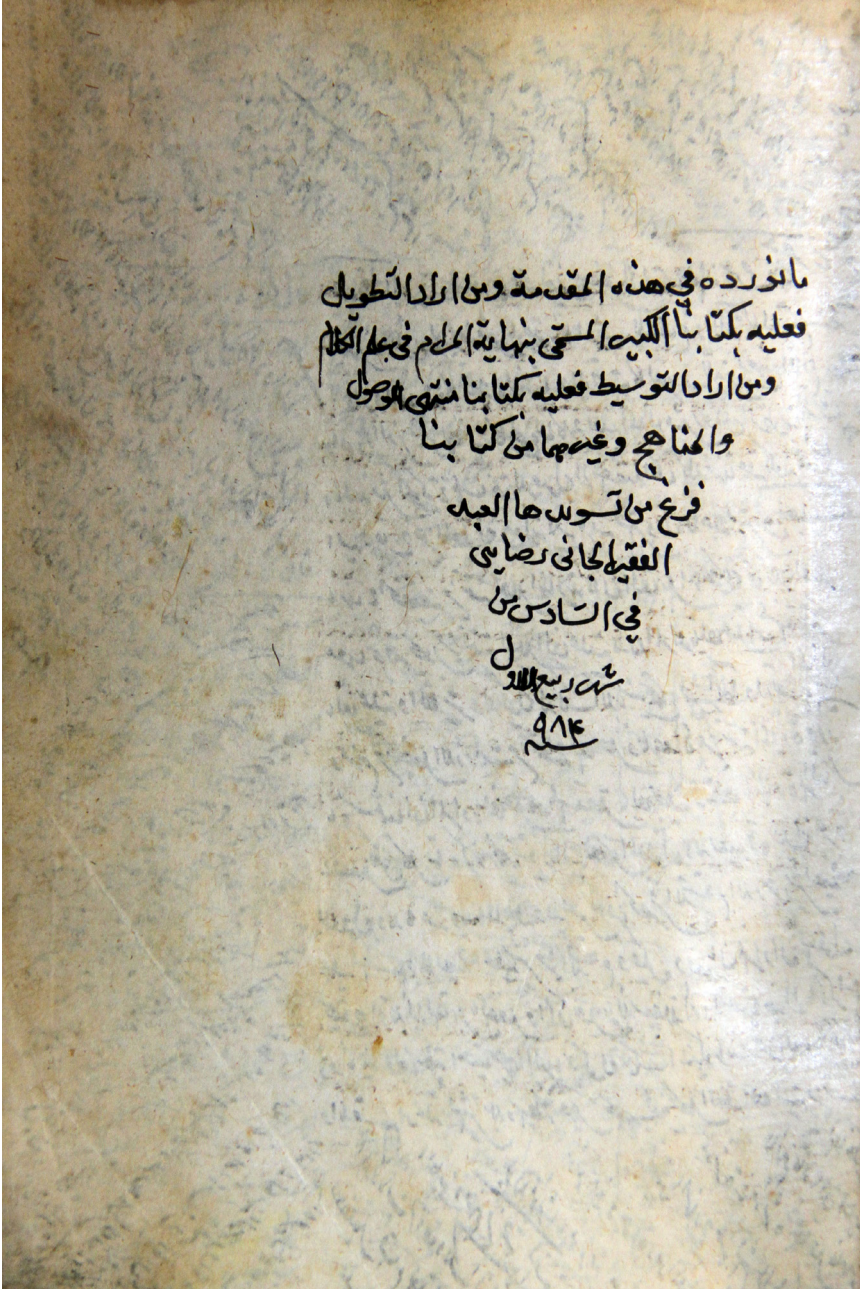 ما نورده في هذه المقدمة ومن اراد التطويل
فعليه بكتابنا الكبير المسمّى بنهاية المرام في علم الكلام
ومن اراد التوسيط فعليه بكتابنا منتهى الوصول
والمناهج وغيرهما من كتابنا
فرغ من تسويدها العبد
الفقير الجانى
في السّادس من
شهر ربيع الاول
سنه ٩٨۴